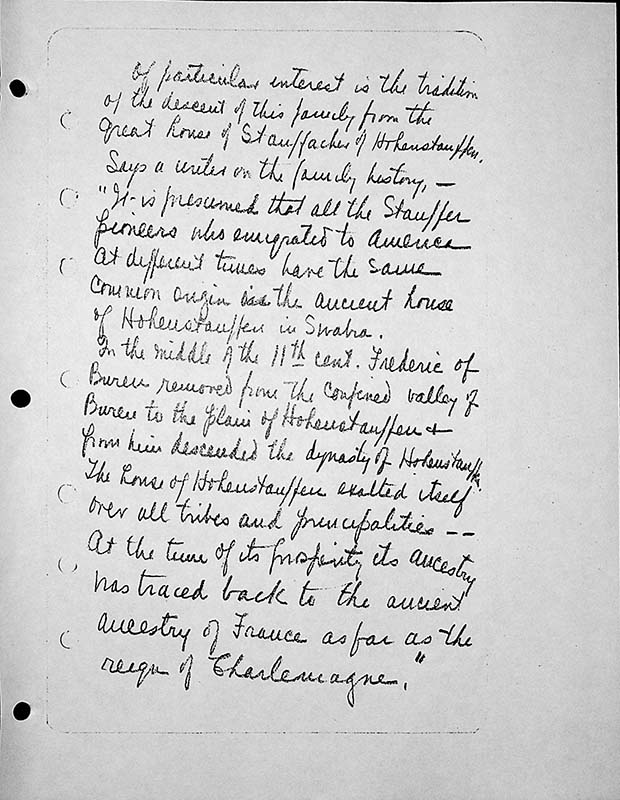 Of particular interest is the tradition
of the descent of this family from the
great house of Stauffacher of Hohenstauffen.
Says a writer on the family history, —
"It is presumed that all the Stauffer
pioneers who emigrated to America
at different times have the same
common origin in the ancient house
of Hohenstauffen in Swabia.
In the middle of the 11th cent. Frederic of
Buren removed from the confined valley of
Buren to the plain of Hohenstauffen &
from him descended the dynasty of Hohenstauffen.
The house of Hohenstauffen exalted itself
over all tribes and principalities --
At the time of its prosperity its ancestry
was traced back to the ancient
ancestry of France as far as the
reign of Charlemagne."